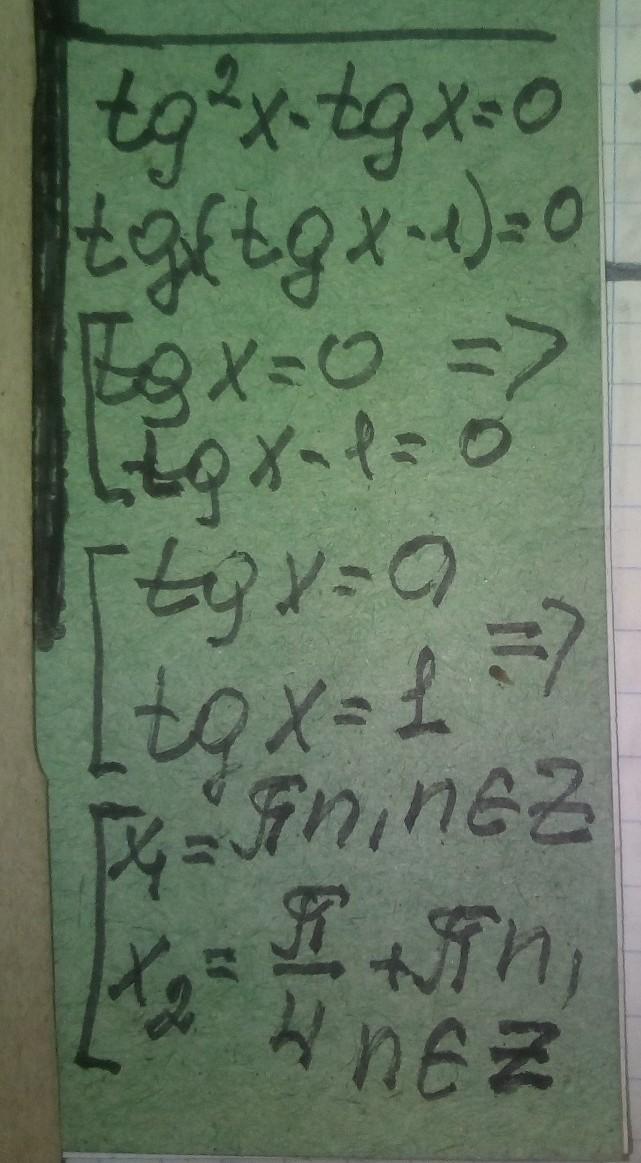 tg²x - tg x = 0
tgx(tg x - 1) = 0
[tg x = 0 =>
tg x - 1 = 0
[tg x = 0
=>
tg x = 1
[x₁ = πn, n ∈ Z
x₂ = π/4 + πn,
n ∈ Z